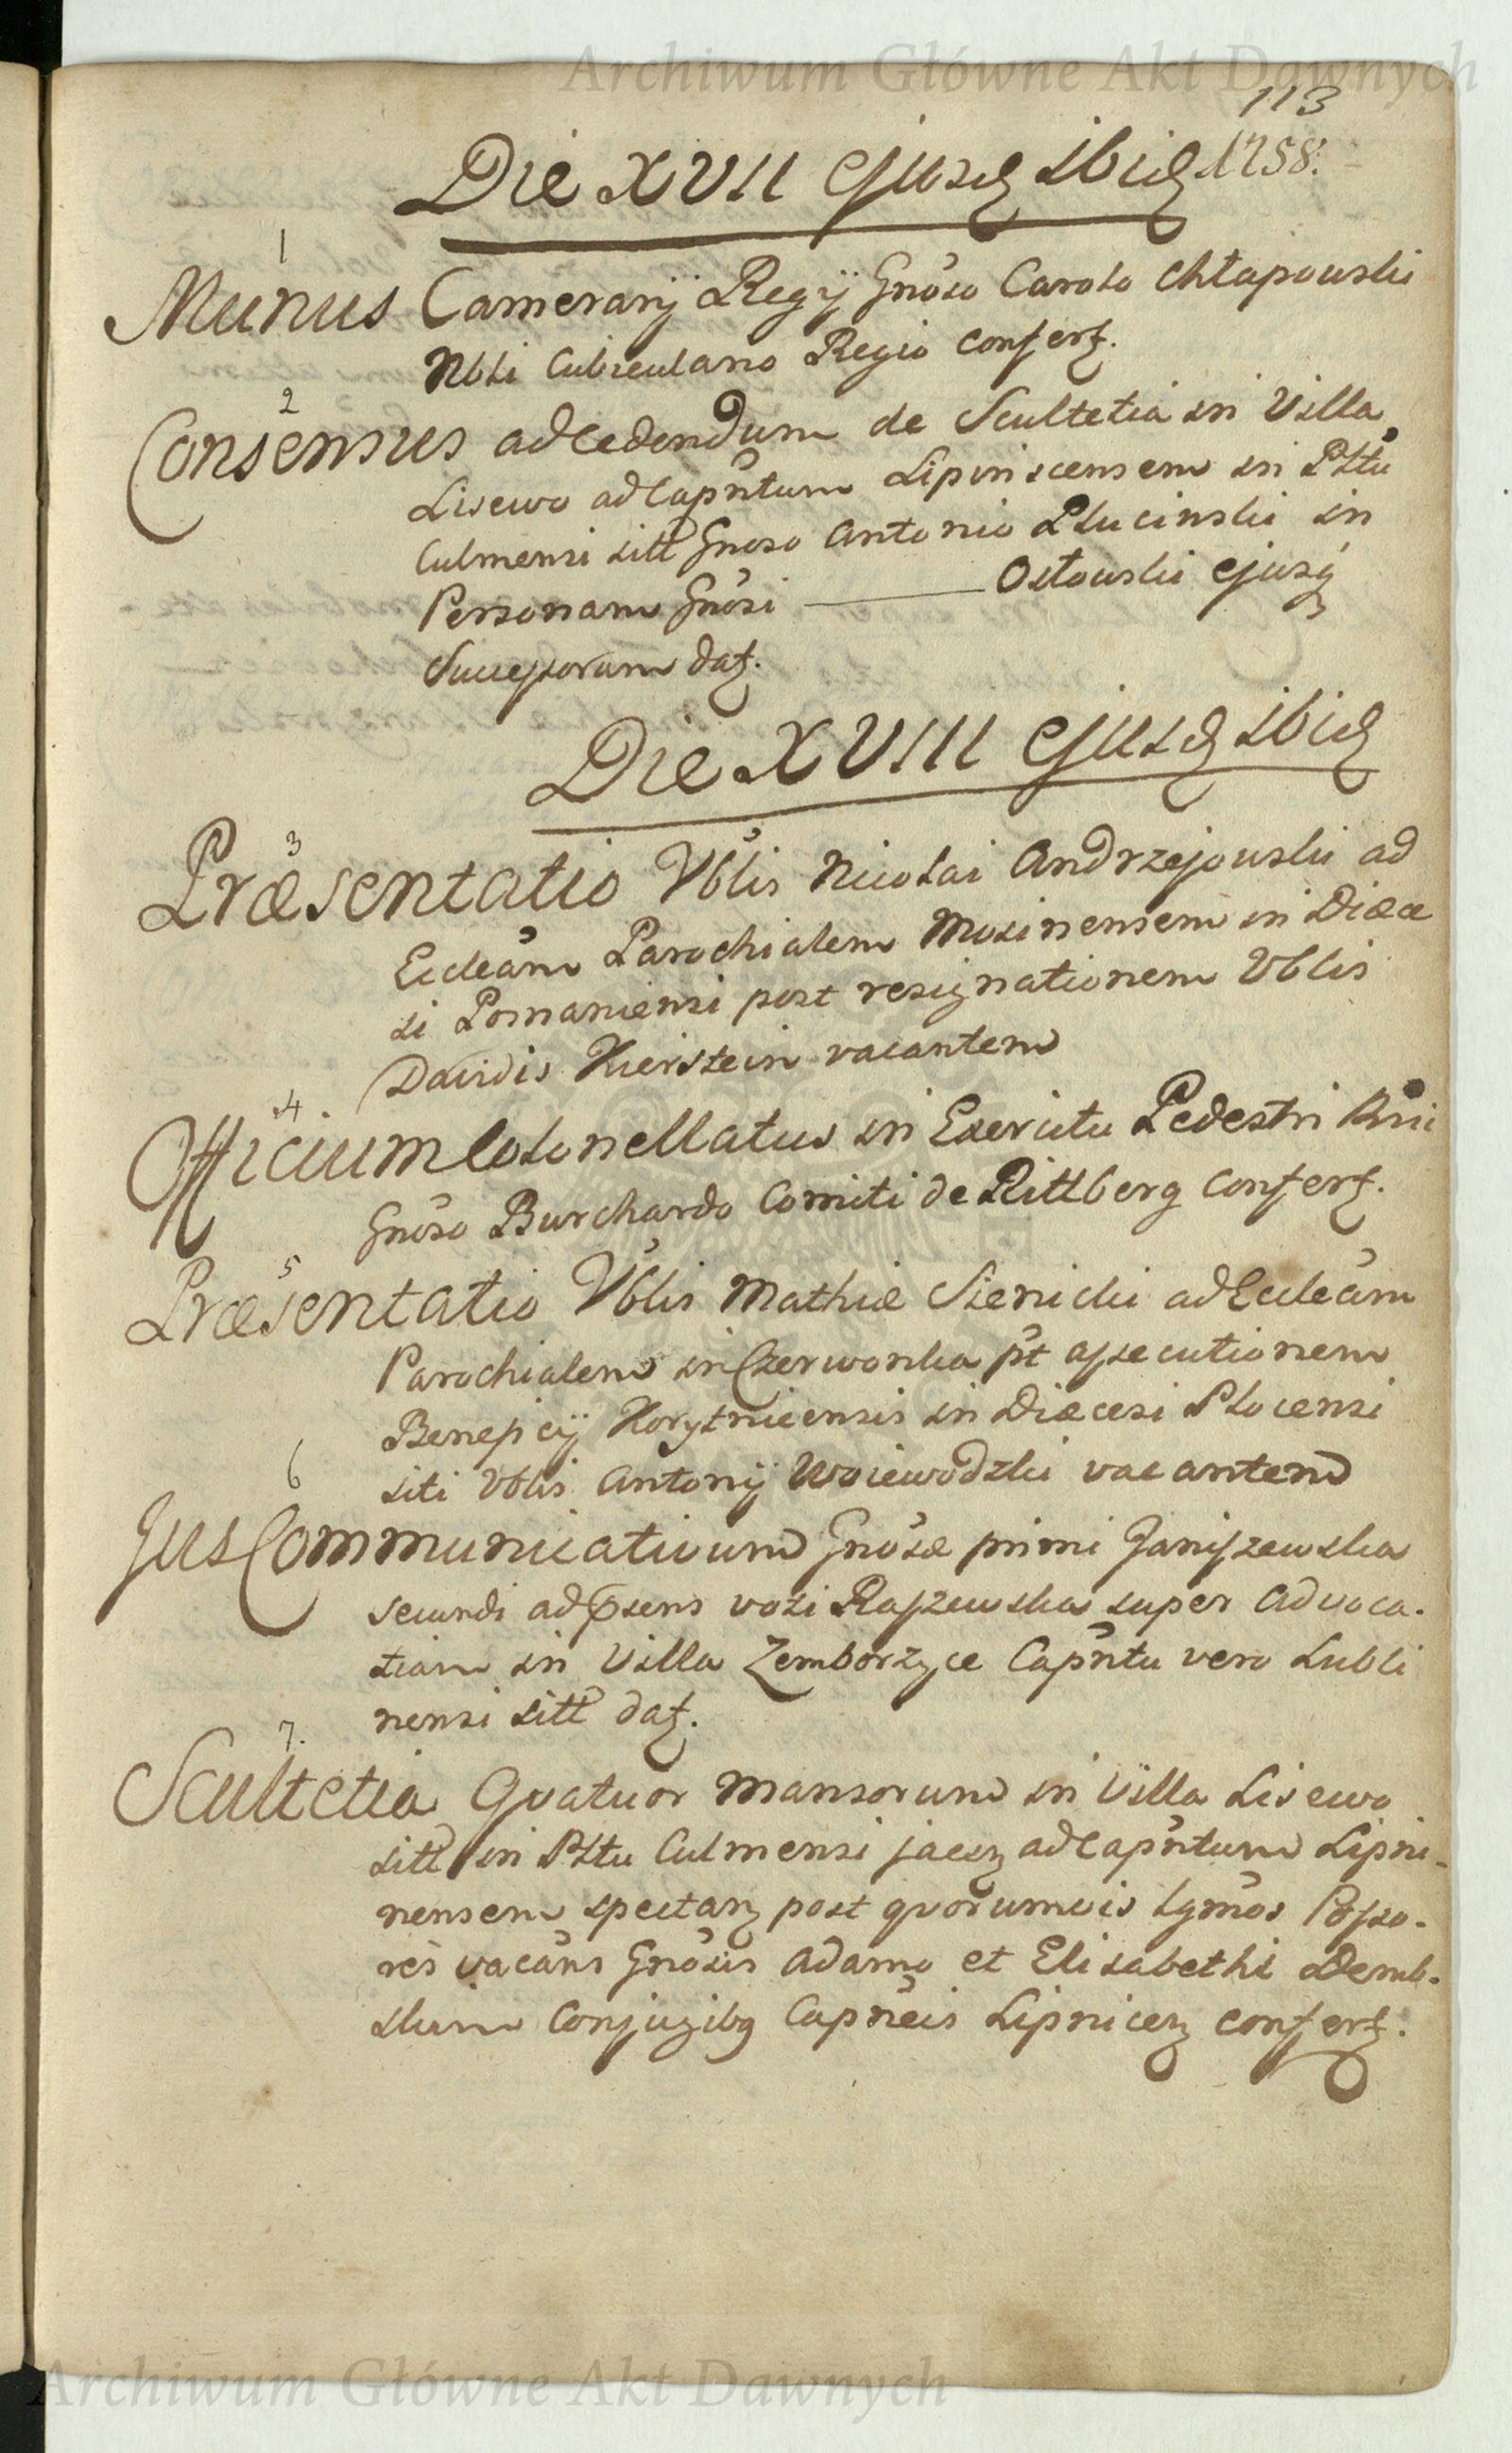 Archiwum Główne Akt Dawnych
113
Die XVII ejusd ibid 1758.
1
Munus Camerarij Regij Gnoso Carolo Chłapowski
Nbli Cubiculario Regio confert.
2
Consensus ad cedendum de Scultetia in Villa
Lisewo ad Capntum Lipiniscensem in Pltu
Culmensi sitt Gnoso Antonio Płucinski in
Personam Gnosi ——— Osłowski ejusq
Successorum dat.
Die XVIII ejusd ibid
3
Præsentatio Vblis Nicolai Andrzejowski ad
Eccleam Parochialem Mosinensem in Diæce
si Posnaniensi post resignationem Vblis
Davidis Hierstein vacantem
4.
Officium Colonellatus in Exercitu Pedestri Rni
Gnoso Burchardo Comiti de Rittberg confert.
5
Præsentatio Vblis Mathiæ Sienicki ad Eccleam
Parochialem in Czerwonka pt assecutionem
Beneficij Korytnicensis in Diæcesi Plocensi
siti Vblis Antonij Woiewodzki vacantem
6
Jus Communicativum Gnosæ primi Janiszewska
secundi ad psens voti Raszewska super Advoca-
tiam in Villa Zemborzyce Capntu vero Lubli
nensi sitt dat.
7.
Scultetia Quatuor Mansorum in Villa Lisewo
sitt in Pltu Culmensi jacen ad Capntum Lipni-
nensem spectan post quorumvis lgmos Posso-
res vacans Gnosis Adamo et Elisabethi Demb-
skim Conjugibq Capneis Lipnicen confert.
Archiwum Główne Akt Dawnych